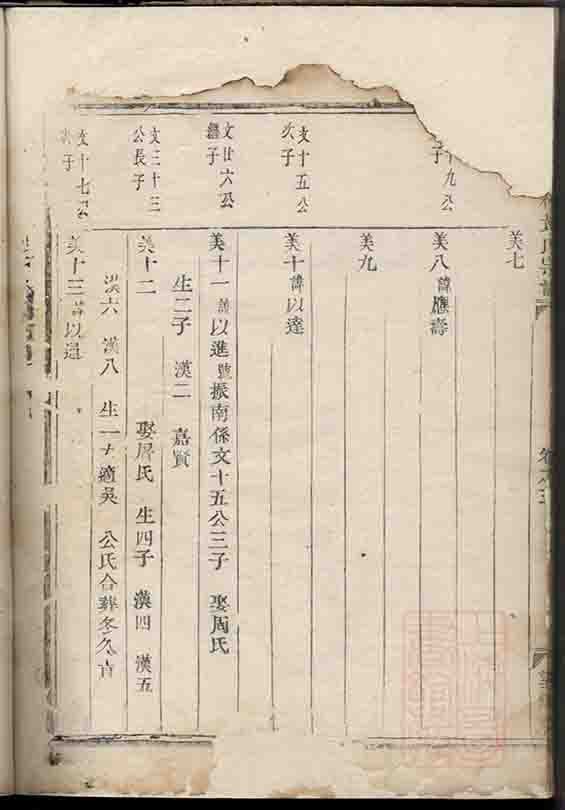 美七
九公
子
美八諱應壽
美九
文十五公
次子
美十諱以達
文廿六公
繼子
美十一諱以進號振南係文十五公三子 娶周氏
生二子 漢二 嘉賢
文三十三
公長子
美十二 娶屠氏 生四子 漢四 漢五
漢六 漢八 生一女適吳 公氏合葬冬久
文十七公
子
美十三諱以